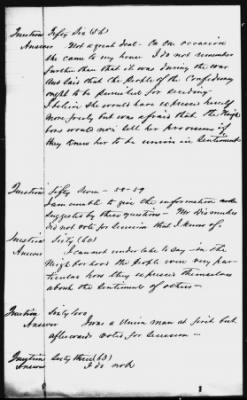 Question Fifty Six (56)
Answer Not a great deal - On one occasion
she came to my house I do not remember
further than that it was during the war
and said that the People of the Confederacy
ought to be punished for seceding
I believe she would have expressed herself
more freely but was afraid that the Neigh
bors would not tell her provisions if
they knew her to be union in Sentiment
Question Fifty Seven - 58 - 59
I am unable to give the information
suggested by these questions - Mr
did not vote for Secession that I know of
Question Sixty (60)
Answer I cannot under take to say - in the
Neighborhood the People were very par-
ticular how they expressed themselves
about the Sentiments of others -
Question Sixty two
Answer I was a Union man at first but
afterwards voted for Secession -
Question Sixty three (63)
Answer I do not